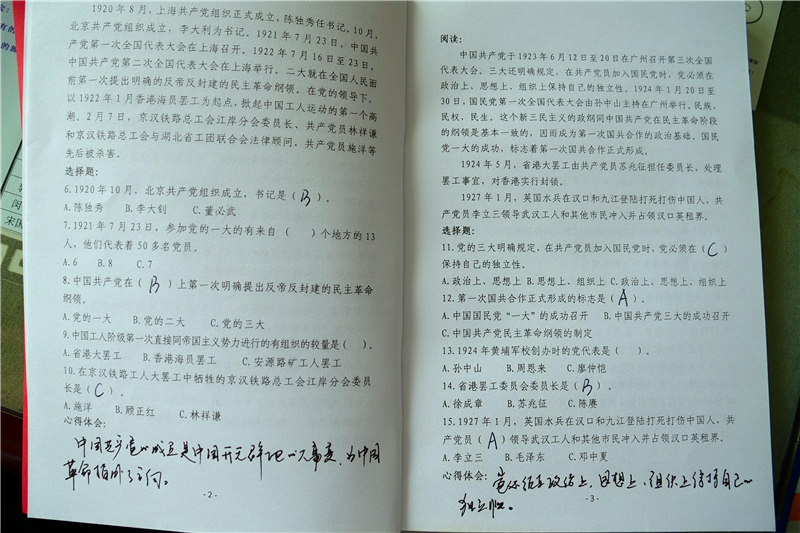 1920 年 8 月，上海共产党组织正式成立，陈独秀任书记。10 月，
北京共产党组织成立，李大利为书记。1921 年 7 月 23 日，中国共
产党第一次全国代表大会在上海召开。1922 年 7 月 16 日至 23 日，
中国共产党第二次全国代表大会在上海举行。二大就在全国人民面
前第一次提出明确的反帝反封建的民主革命纲领。在党的领导下，
以 1922 年 1 月香港海员罢工为起点，掀起中国工人运动的第一个高
潮。2 月 7 日，京汉铁路总工会江岸分会委员长、共产党员林祥谦
和京汉铁路总工会与湖北省工团联合会法律顾问、共产党员施洋等
先后被杀害。
选择题：
6.1920 年 10 月，北京共产党组织成立，书记是（ B ）。
A.陈独秀 B.李大钊 C.董必武
7.1921 年 7 月 23 日，参加党的一大的有来自（ ）个地方的 13
人，他们代表着 50 多名党员。
A.6 B.8 C.7
8.中国共产党在（ B ）上第一次明确提出反帝反封建的民主革命
纲领。
A.党的一大 B.党的二大 C.党的三大
9.中国工人阶级第一次直接同帝国主义势力进行的有组织的较量是（ ）。
A.省港大罢工 B.香港海员罢工 C.安源路矿工人罢工
10.在京汉铁路工人大罢工中牺牲的京汉铁路总工会江岸分会委员
长是（ C ）。
A.施洋 B.顾正红 C.林祥谦
心得体会：
中国共产党的成立是中国开天辟地的大事变，为中国
革命指明了方向。
- 2 -
阅读：
中国共产党于 1923 年 6 月 12 日至 20 日在广州召开第三次全国
代表大会。三大还明确规定，在共产党员加入国民党时，党必须在
政治上、思想上、组织上保持自己的独立性。1924 年 1 月 20 日至
30 日，国民党第一次全国代表大会由孙中山主持在广州举行。民族、
民权、民生。这个新三民主义的政纲同中国共产党在民主革命阶段
的纲领是基本一致的，因而成为第一次国共合作的政治基础。国民
党一大的成功，标志着第一次国共合作正式形成。
1924 年 5 月，省港大罢工由共产党员苏兆征担任委员长，处理
罢工事宜，对香港实行封锁。
1927 年 1 月，英国水兵在汉口和九江登陆打死打伤中国人，共
产党员李立三领导武汉工人和其他市民冲入并占领汉口英租界。
选择题：
11.党的三大明确规定，在共产党员加入国民党时，党必须在（ C ）
保持自己的独立性。
A.政治上、思想上 B.思想上、组织上 C.政治上、思想上、组织上
12.第一次国共合作正式形成的标志是（ A ）。
A.中国国民党“一大”的成功召开 B.中国共产党三大的成功召开
C.中国共产党民主革命纲领的制定
13.1924 年黄埔军校创办时的党代表是（ ）。
A.孙中山 B.周恩来 C.廖仲恺
14.省港罢工委员会委员长是（ B ）。
A.徐成章 B.苏兆征 C.陈赓
15.1927 年 1 月，英国水兵在汉口和九江登陆打死打伤中国人，共
产党员（ A ）领导武汉工人和其他市民冲入并占领汉口英租界。
A.李立三 B.毛泽东 C.邓中夏
心得体会：党必须在政治上，思想上、组织上保持自己的
独立性。
- 3 -